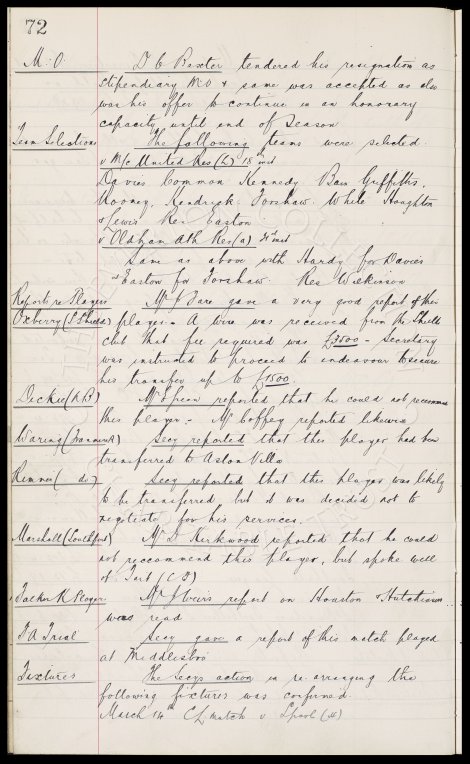 72
M.O. Dr C Baxter tendered his resignation as
stipendiary M.O & same was accepted as also
was his offer to continue in an honorary
capacity until end of Season
Team Selections The following teams were selected.
v M/c United Res (L) 18th inst
Davies Common Kennedy Bain Griffiths.
Rooney. Kendrick Forshaw. White Houghton
& Lewis Res Easton
v Oldham Ath Res (a) 21st inst
Same as above with Hardy for Davies
& Easton for Forshaw. Res Wilkinson
Reports re Players Mr J Fare gave a very good report of this
Oxberry (S Shields) player. A wire was received from the Shields
club that fee required was £3500 - Secretary
was instructed to proceed to endeavour to secure
his transfer up to £1500.
Dickie (K.B) Mr reported that he could not recommend
this player. Mr Coffey reported likewise
Waring (Tranmere R) Secy reported that this player had been
transferred to Aston Villa
Rimmer ( do ) Secy reported that this player was likely
to be transferred but it was decided not to
negotiate for his services.
Marshall (Southport) Mr D Kirkwood reported that he could
not reccommend this player, but spoke well
of
Falkirk Players Mr J Weirs report on Houston & Hutchinson
was read
F A Trial Secy gave a report of this match played
at Middlesbro
Fixtures The Secys action in re-arranging the
following fixtures was confirmed.
March 14th CL match v Lpool (H)